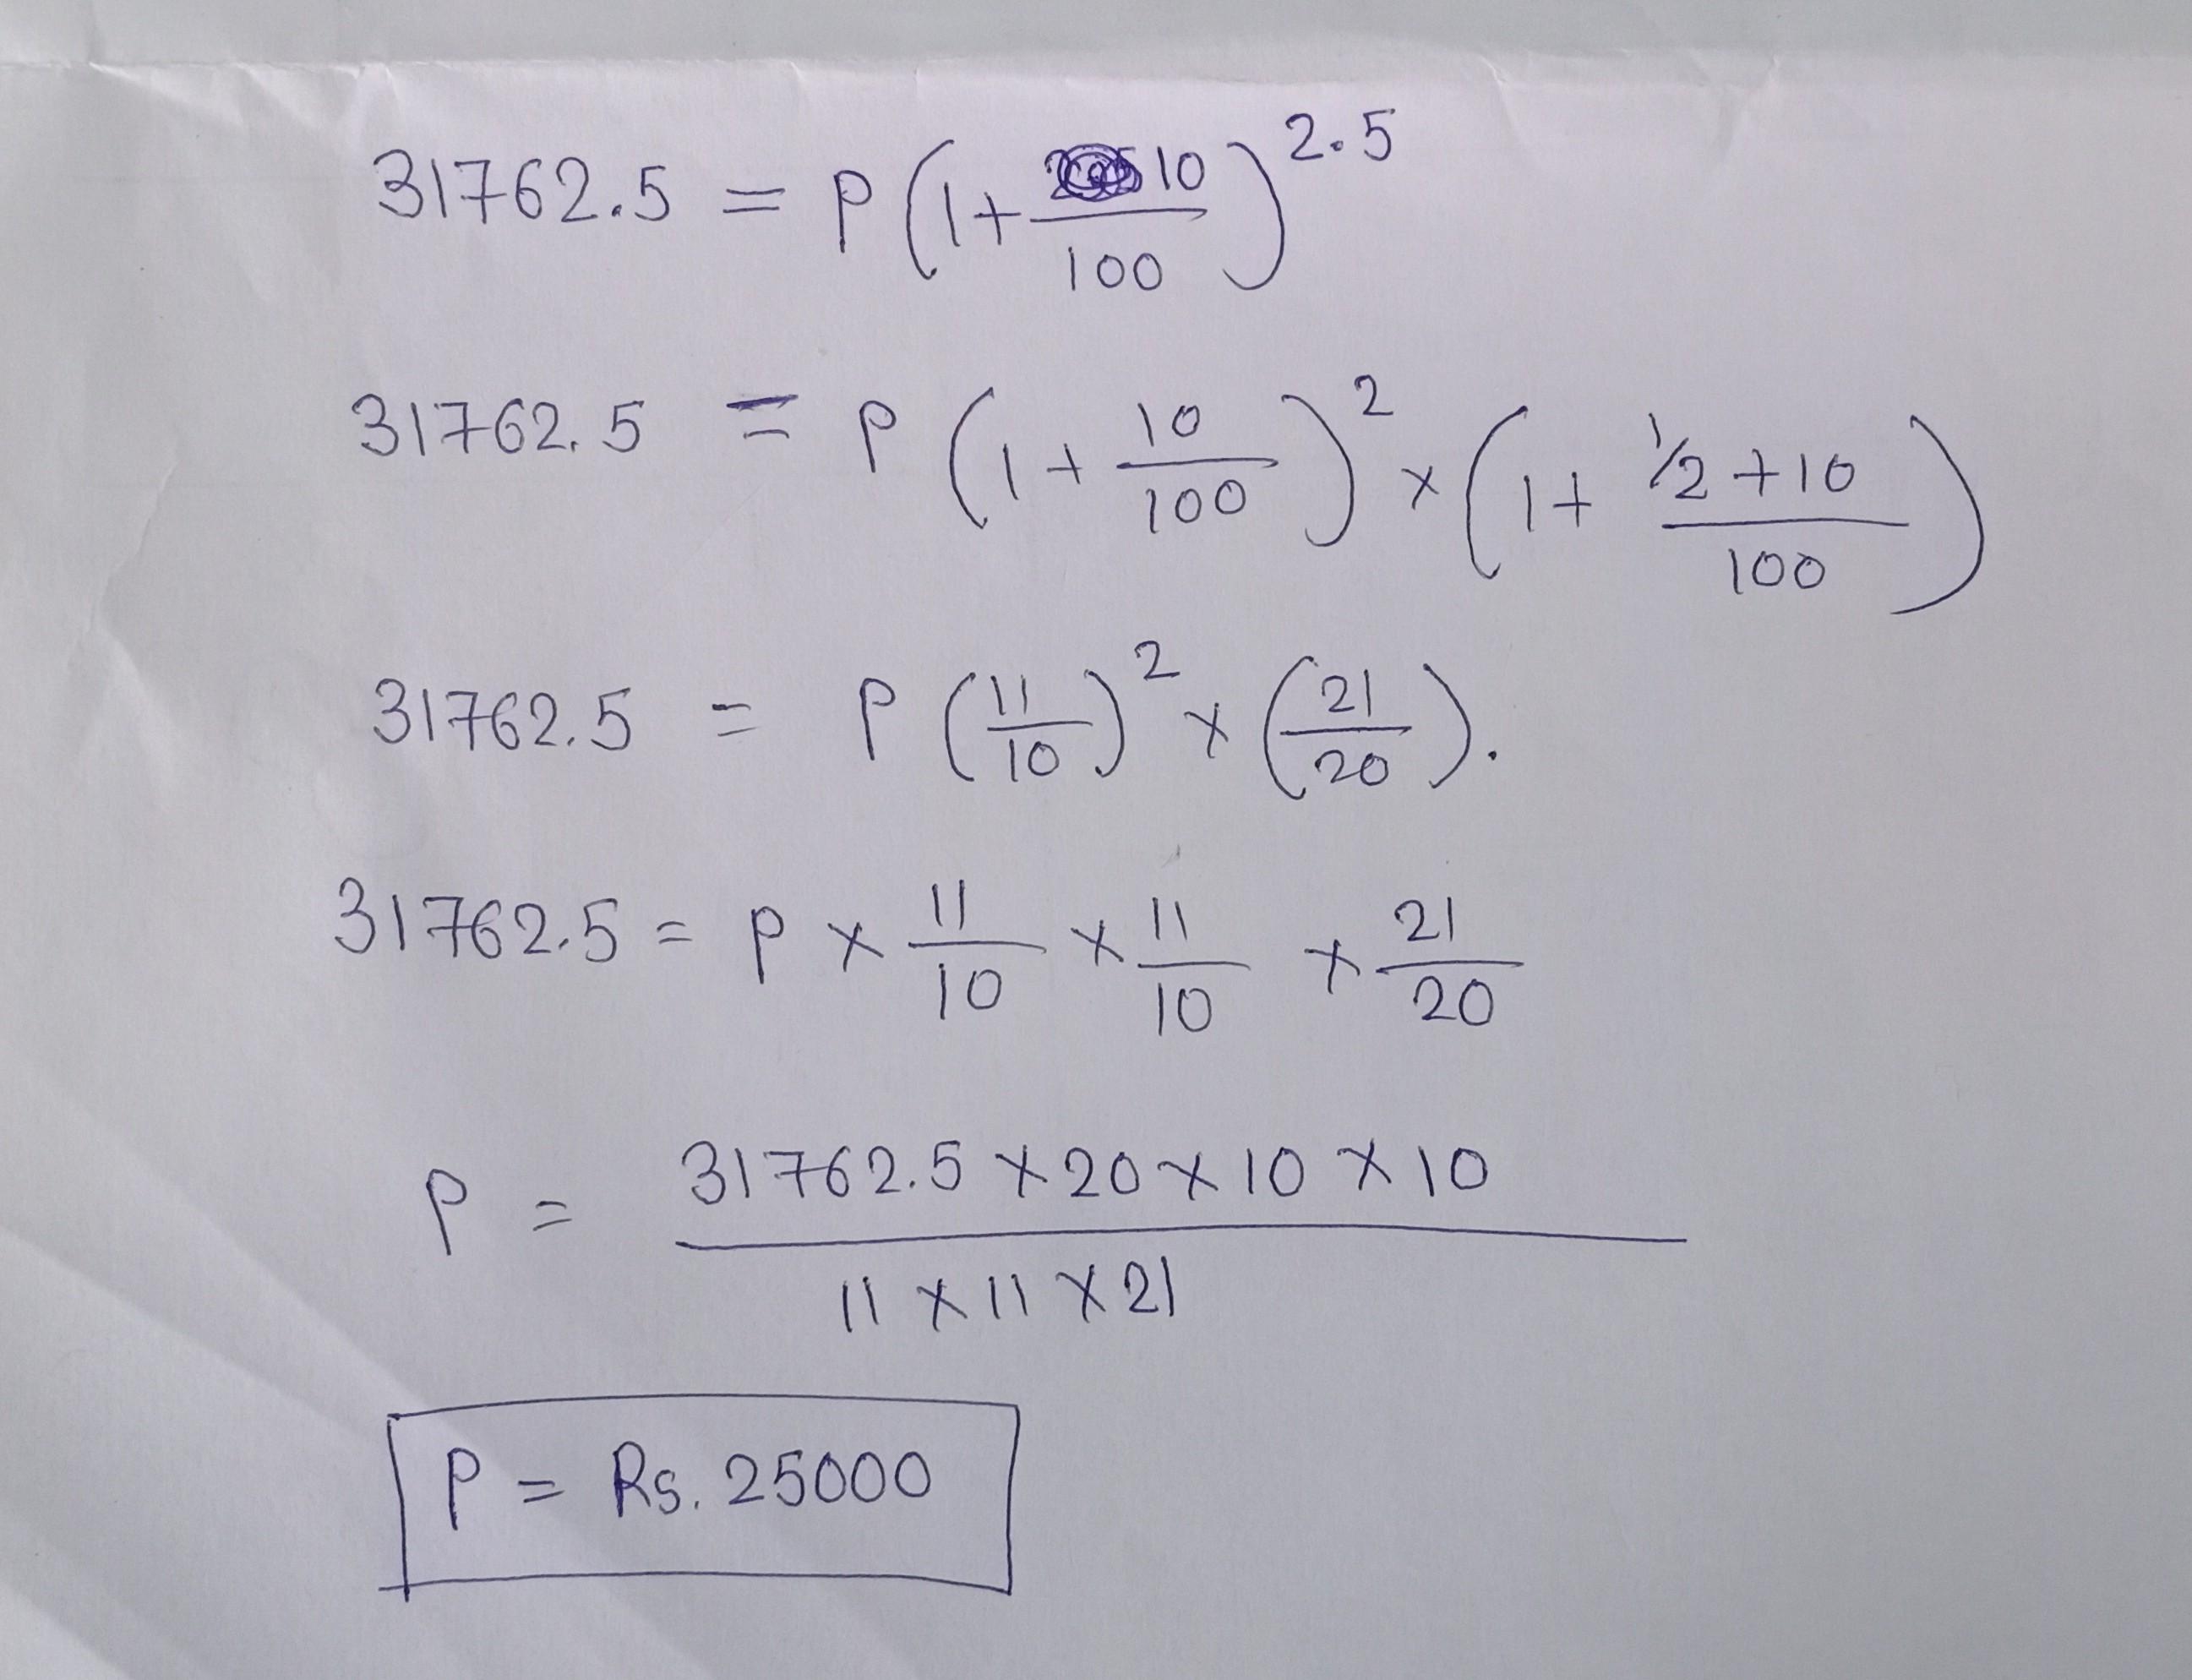 31762.5 = P(1+10/100)^2.5
31762.5 = P(1+10/100)^2 x (1+ 1/2+10/100)
31762.5 = P(11/10)^2 x (21/20).
31762.5 = P x 11/10 x 11/10 x 21/20
P = 31762.5 x 20 x 10 x 10 / 11 x 11 x 21
P = Rs. 25000